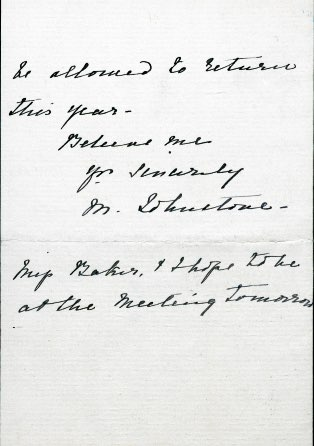 be allowed to return
this year -
Believe me
yrs sincerely
M. Johnstone -
Miss Baker, & I hope to be
at the Meeting tomorrow